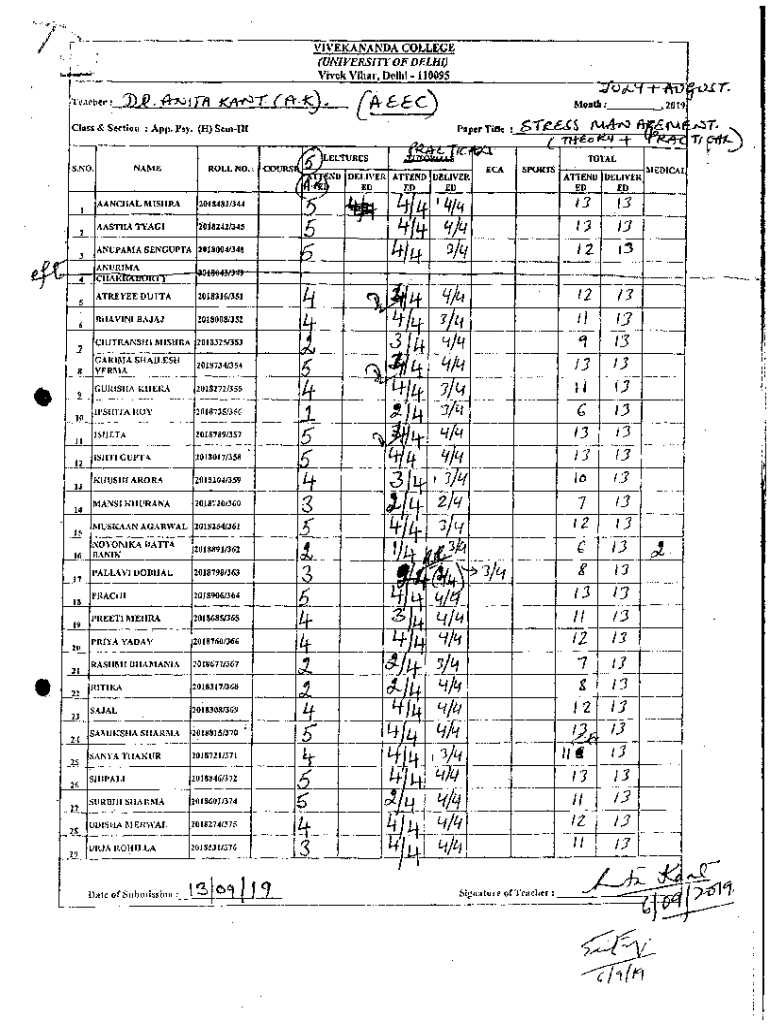 VIVEKANANDA COLLEGE
(UNIVERSITY OF DELHI)
Vivek Vihar, Delhi - 110095
JULY + AUGUST.
Teacher : DR. ANITA KANT (A.K). (AEEC) Month : , 2019
Class & Section : App. Psy. (H) Sem-III Paper Title : STRESS MANAGEMENT.
(THEORY + PRACTICAL)
S.NO. NAME ROLL NO. COURSE 5 LECTURES PRACTICALS ECA SPORTS TOTAL MEDICAL
ATTENDED DELIVERED ATTENDED DELIVERED ATTENDED DELIVERED
1 AANCHAL MISHRA 2018482/344 5 4/4 4/4 13 13
2 AASTHA TYAGI 2018242/345 5 4/4 4/4 13 13
3 ANUPAMA SENGUPTA 2018004/348 5 4/4 3/4 12 13
4 ANURIMA CHAKRABORTY
5 ATREYEE DUTTA 2018316/351 4 /4 4/4 12 13
6 BHAVINI BAJAJ 2018008/352 4 4/4 3/4 11 13
7 CHITRANSHI MISHRA 2018325/353 2 3/4 4/4 9 13
8 GARIMA SHAILESH VERMA 2018734/354 5 /4 4/4 13 13
9 GURISHA KHERA 2018272/355 4 4/4 3/4 11 13
10 IPSHITA ROY 2018735/356 1 2/4 3/4 6 13
11 ISHITA 2018789/357 5 /4 4/4 13 13
12 ISHTI GUPTA 2018017/358 5 4/4 4/4 13 13
13 KHUSHI ARORA 2018204/359 4 3/4 3/4 10 13
14 MANSI KHURANA 2018720/360 3 2/4 2/4 7 13
15 MUSKAAN AGARWAL 2018264/361 5 4/4 3/4 12 13
16 NOYONIKA DATTA BANIK 2018891/362 2 1/4 3/4 6 13 2
17 PALLAVI DOBHAL 2018798/363 3 2/4 (2/4) → 3/4 8 13
18 PRACHI 2018906/364 5 4/4 4/4 13 13
19 PREETI MEHRA 2018685/365 4 3/4 4/4 11 13
20 PRIYA YADAV 2018760/366 4 4/4 4/4 12 13
21 RASHMI BHAMANIA 2018677/367 2 2/4 3/4 7 13
22 RITIKA 2018317/368 2 2/4 4/4 8 13
23 SAJAL 2018308/369 4 4/4 4/4 12 13
24 SAMIKSHA SHARMA 2018815/370 5 4/4 4/4 13 13
25 SANYA THAKUR 2018721/371 4 4/4 3/4 11 13
26 SHIPALI 2018846/372 5 4/4 4/4 13 13
27 SURBHI SHARMA 2018607/374 5 2/4 4/4 11 13
28 UDISHA MERWAL 2018274/375 4 4/4 4/4 12 13
29 URJA ROHILLA 2018531/376 3 4/4 4/4 11 13
Date of Submission : 13/09/19 Signature of Teacher :
6/09/2019
6/9/19